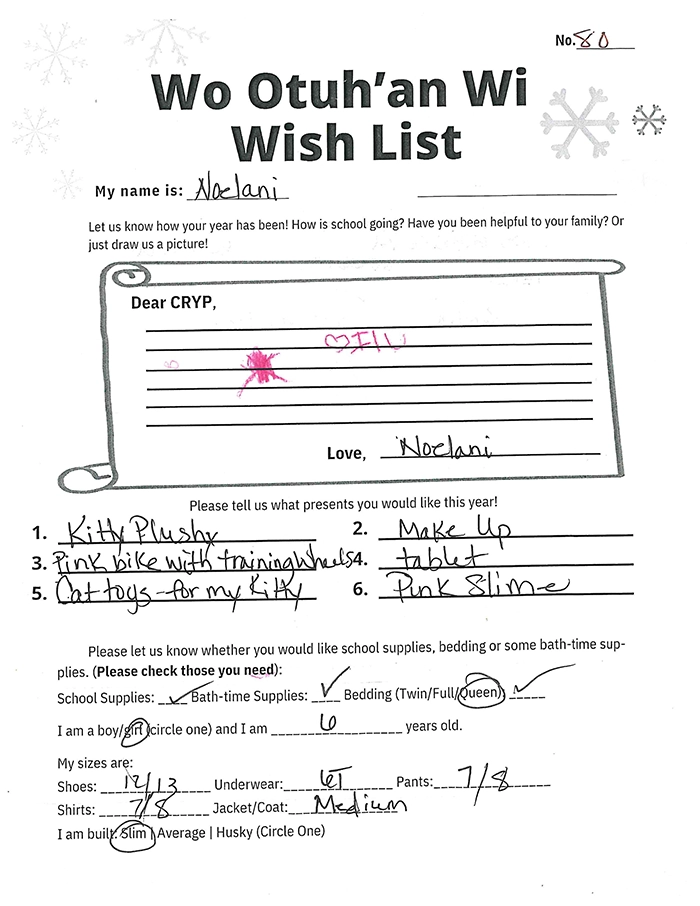 No. 80
Wo Otuh'an Wi
Wish List
My name is: Noelani
Let us know how your year has been! How is school going? Have you been helpful to your family? Or
just draw us a picture!
Dear CRYP,
♡ILU
Love, Noelani
Please tell us what presents you would like this year!
1. Kitty Plushy 2. Make Up
3. Pink bike with training wheels 4. tablet
5. Cat toys - for my Kitty 6. Pink Slime
Please let us know whether you would like school supplies, bedding or some bath-time sup-
plies. (Please check those you need):
School Supplies: ✓ Bath-time Supplies: ✓ Bedding (Twin/Full/Queen) ✓
I am a boy/girl (circle one) and I am 6 years old.
My sizes are:
Shoes: 12/13 Underwear: 6T Pants: 7/8
Shirts: 7/8 Jacket/Coat: Medium
I am built: Slim | Average | Husky (Circle One)